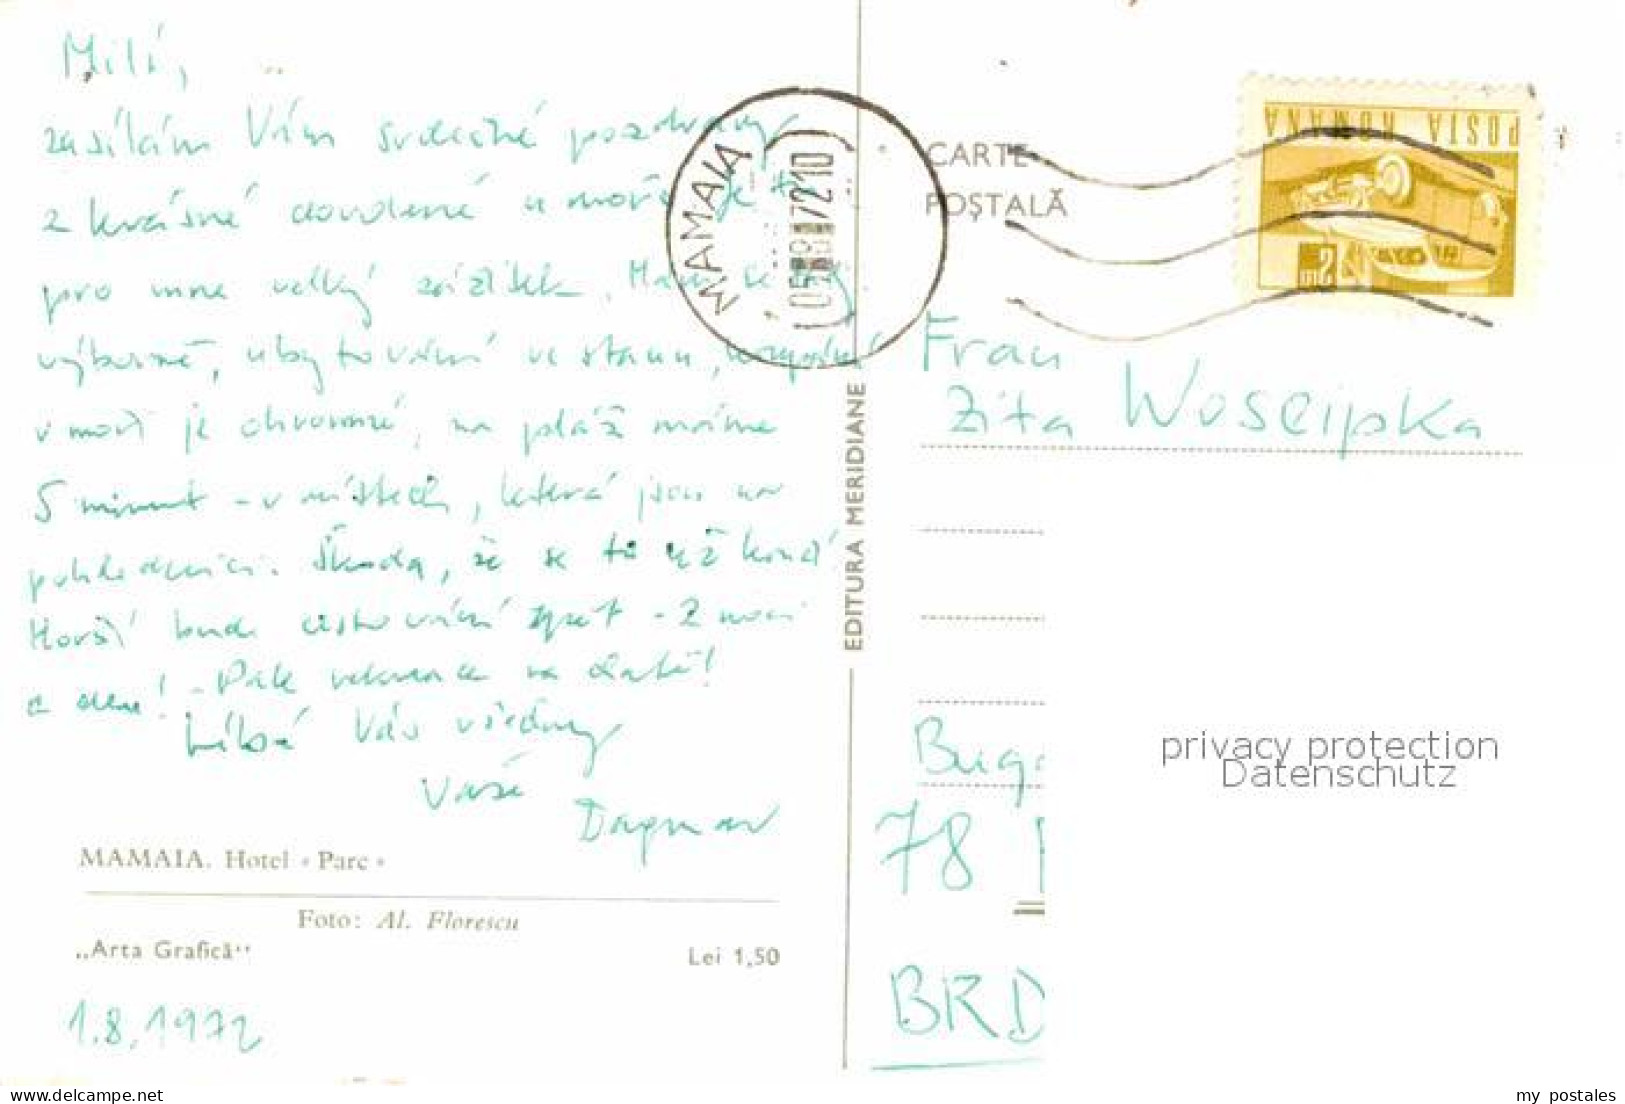 Milí,
zasílám Vám srdečné pozdravy
z krásné dovolené u moře. Je to
pro mne velký zážitek. Máme se tady
výborně, ubytování ve stanu, koupání
v moři je ohromné, na pláž máme
5 minut - v místech, která jsou na
pohlednici. Škoda, že se to už končí
Horší bude cestování zpět - 2 noci
a den! - Pak rekreace na chatě!
Líbá Vás všechny
Vaše
Dagmar
MAMAIA. Hotel « Parc »
Foto: Al. Florescu
„Arta Grafică“
Lei 1,50
1.8.1972
EDITURA MERIDIANE
MAMAIA
05 8 72 10
CARTE
POŞTALĂ
POSTA ROMANA
2 LEI
Frau
Zita Woscipka
Bug
78
BRD
privacy protection
Datenschutz
www.delcampe.net
my_postales